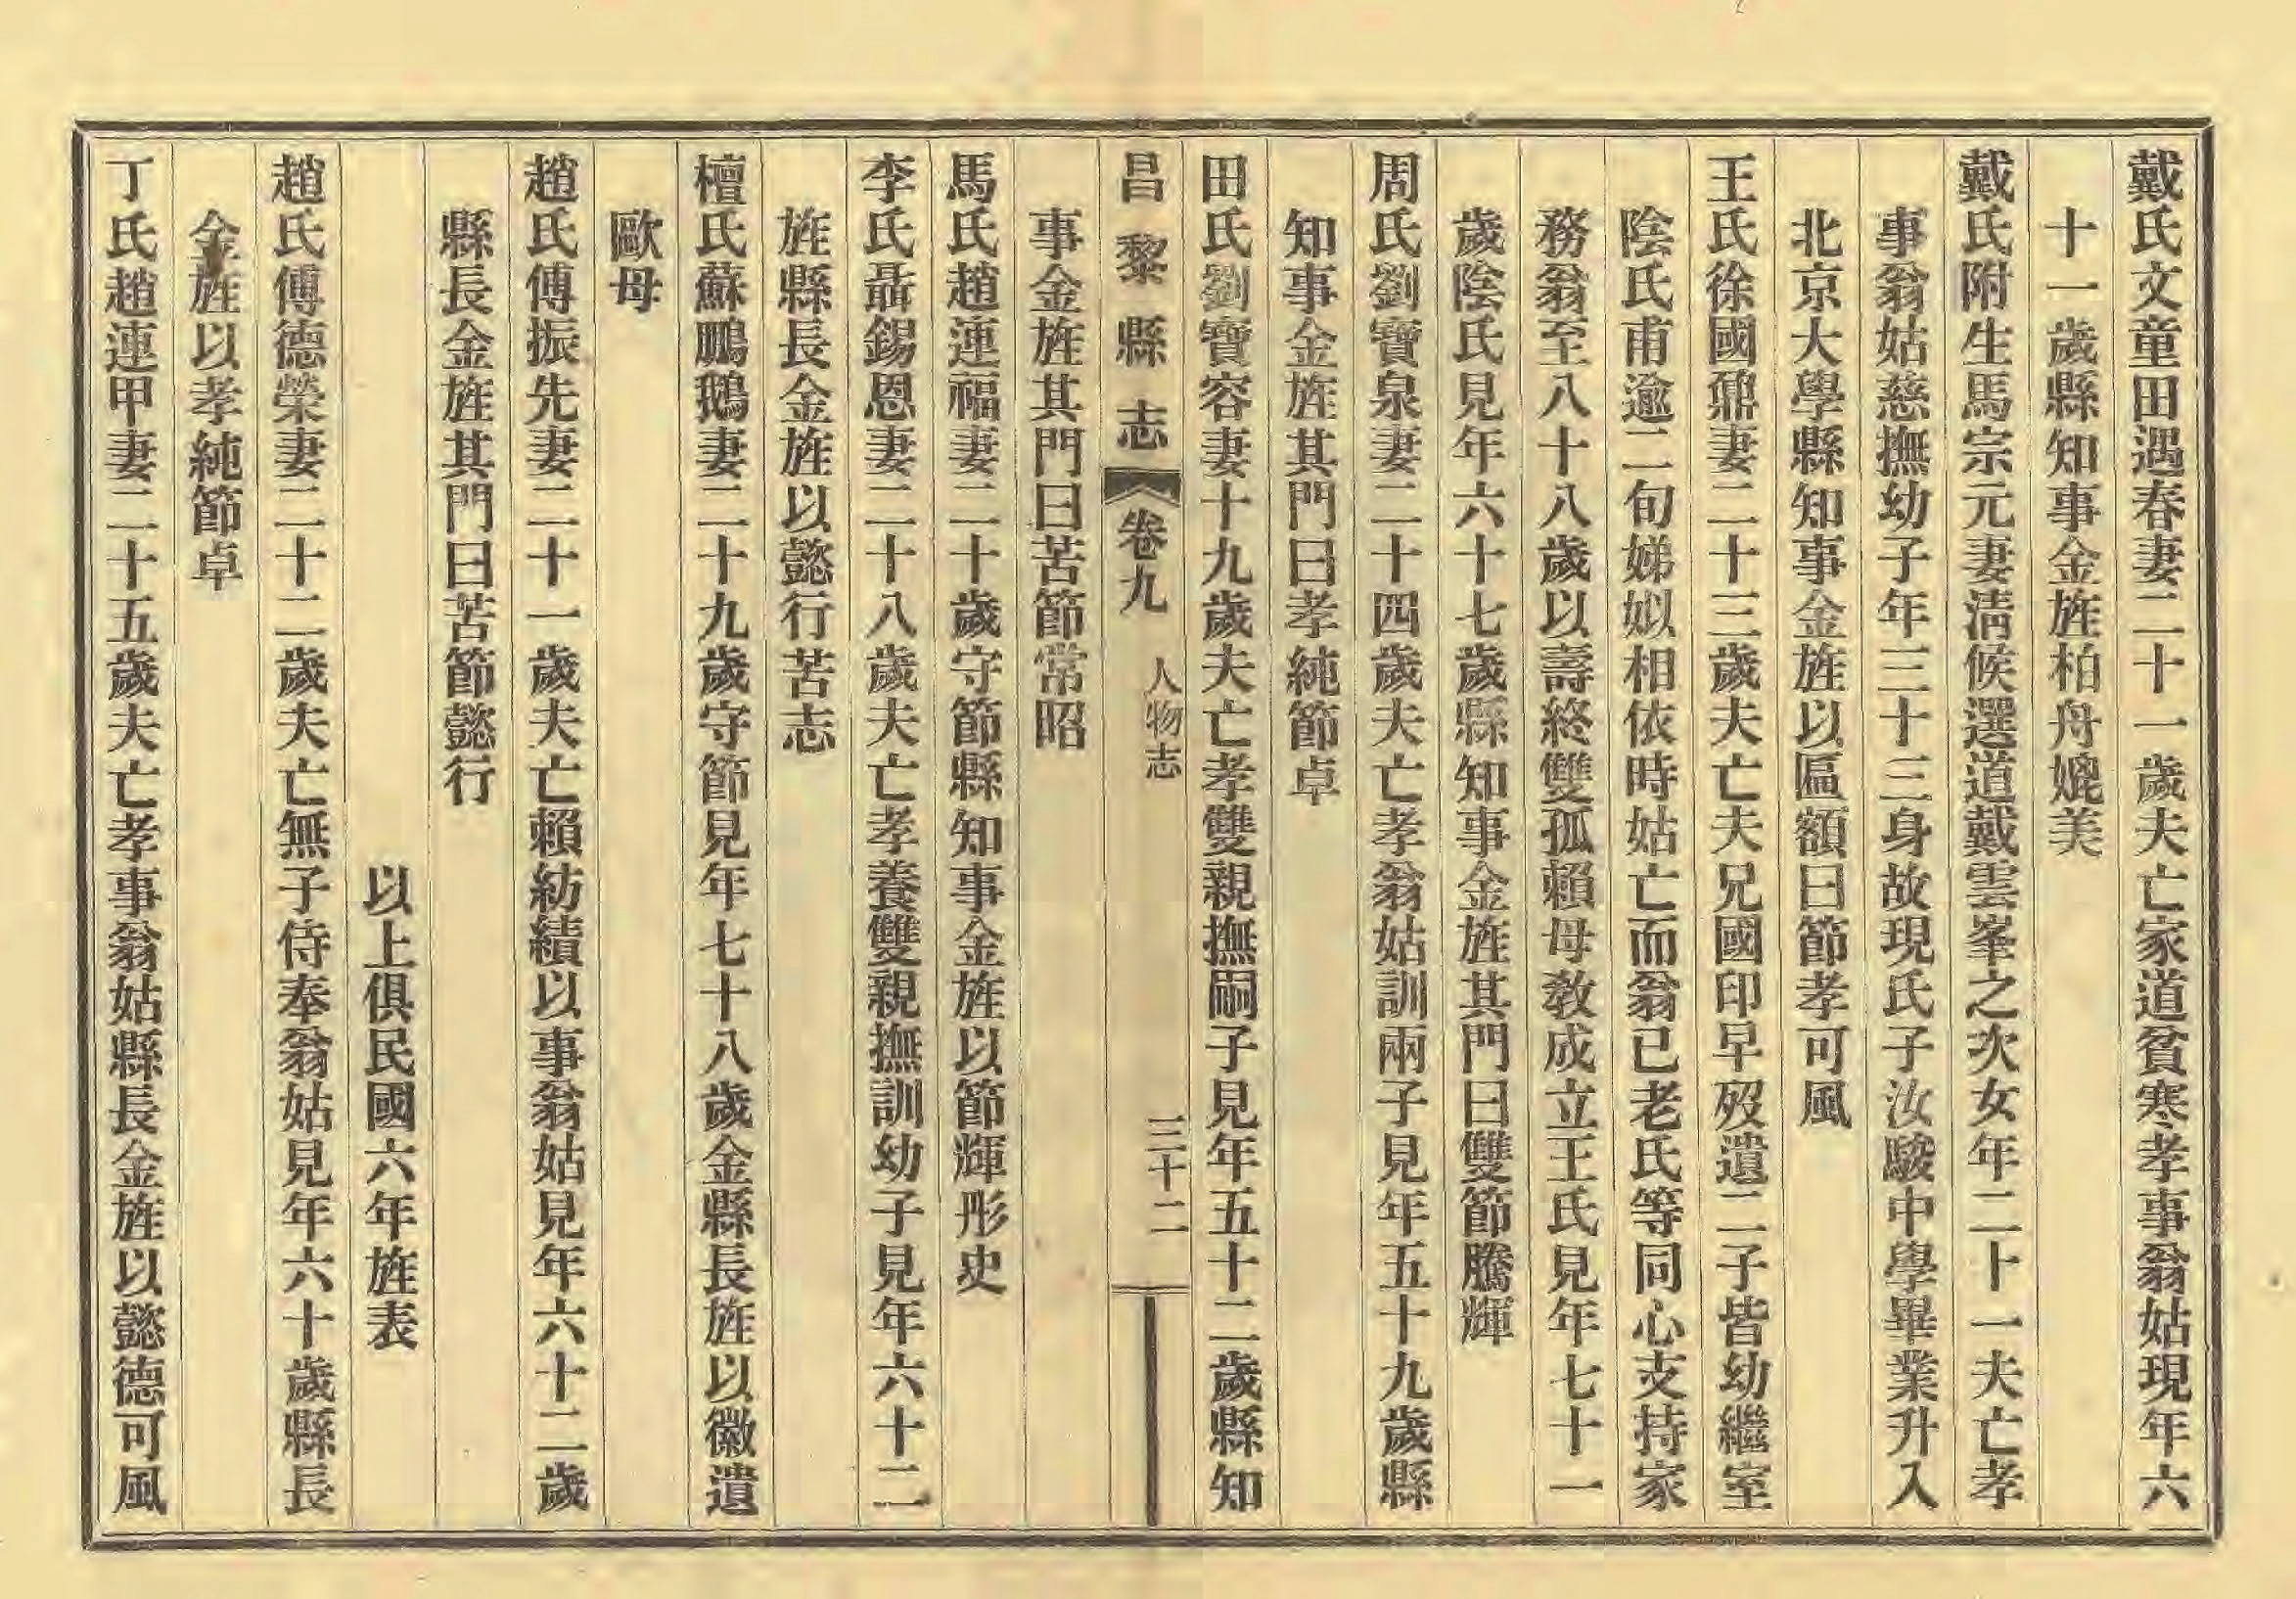 戴氏文童田遇春妻二十一歲夫亡家道貧寒孝事翁姑現年六
十一歲縣知事金旌柏舟媲美
戴氏附生馬宗元妻清候選道戴雲峯之次女年二十一夫亡孝
事翁姑慈撫幼子年三十三身故現氏子汝駿中學畢業升入
北京大學縣知事金旌以匾額曰節孝可風
王氏徐國鼐妻二十三歲夫亡夫兄國印早歿遺二子皆幼繼室
陰氏甫逾二旬娣姒相依時姑亡而翁已老氏等同心支持家
務翁至八十八歲以壽終雙孤賴母教成立王氏見年七十一
歲陰氏見年六十七歲縣知事金旌其門曰雙節騰輝
周氏劉寶泉妻二十四歲夫亡孝翁姑訓兩子見年五十九歲縣
知事金旌其門曰孝純節卓
田氏劉寶容妻十九歲夫亡孝雙親撫嗣子見年五十二歲縣知
昌黎縣志 卷九 人物志 三十二
事金旌其門曰苦節常昭
馬氏趙連福妻二十歲守節縣知事金旌以節輝彤史
李氏聶錫恩妻二十八歲夫亡孝養雙親撫訓幼子見年六十二
旌縣長金旌以懿行苦志
檀氏蘇鵬鵝妻二十九歲守節見年七十八歲金縣長旌以徽遺
歐母
趙氏傅振先妻二十一歲夫亡賴紡績以事翁姑見年六十二歲
縣長金旌其門曰苦節懿行
以上俱民國六年旌表
趙氏傅德榮妻二十二歲夫亡無子侍奉翁姑見年六十歲縣長
金旌以孝純節卓
丁氏趙連甲妻二十五歲夫亡孝事翁姑縣長金旌以懿德可風